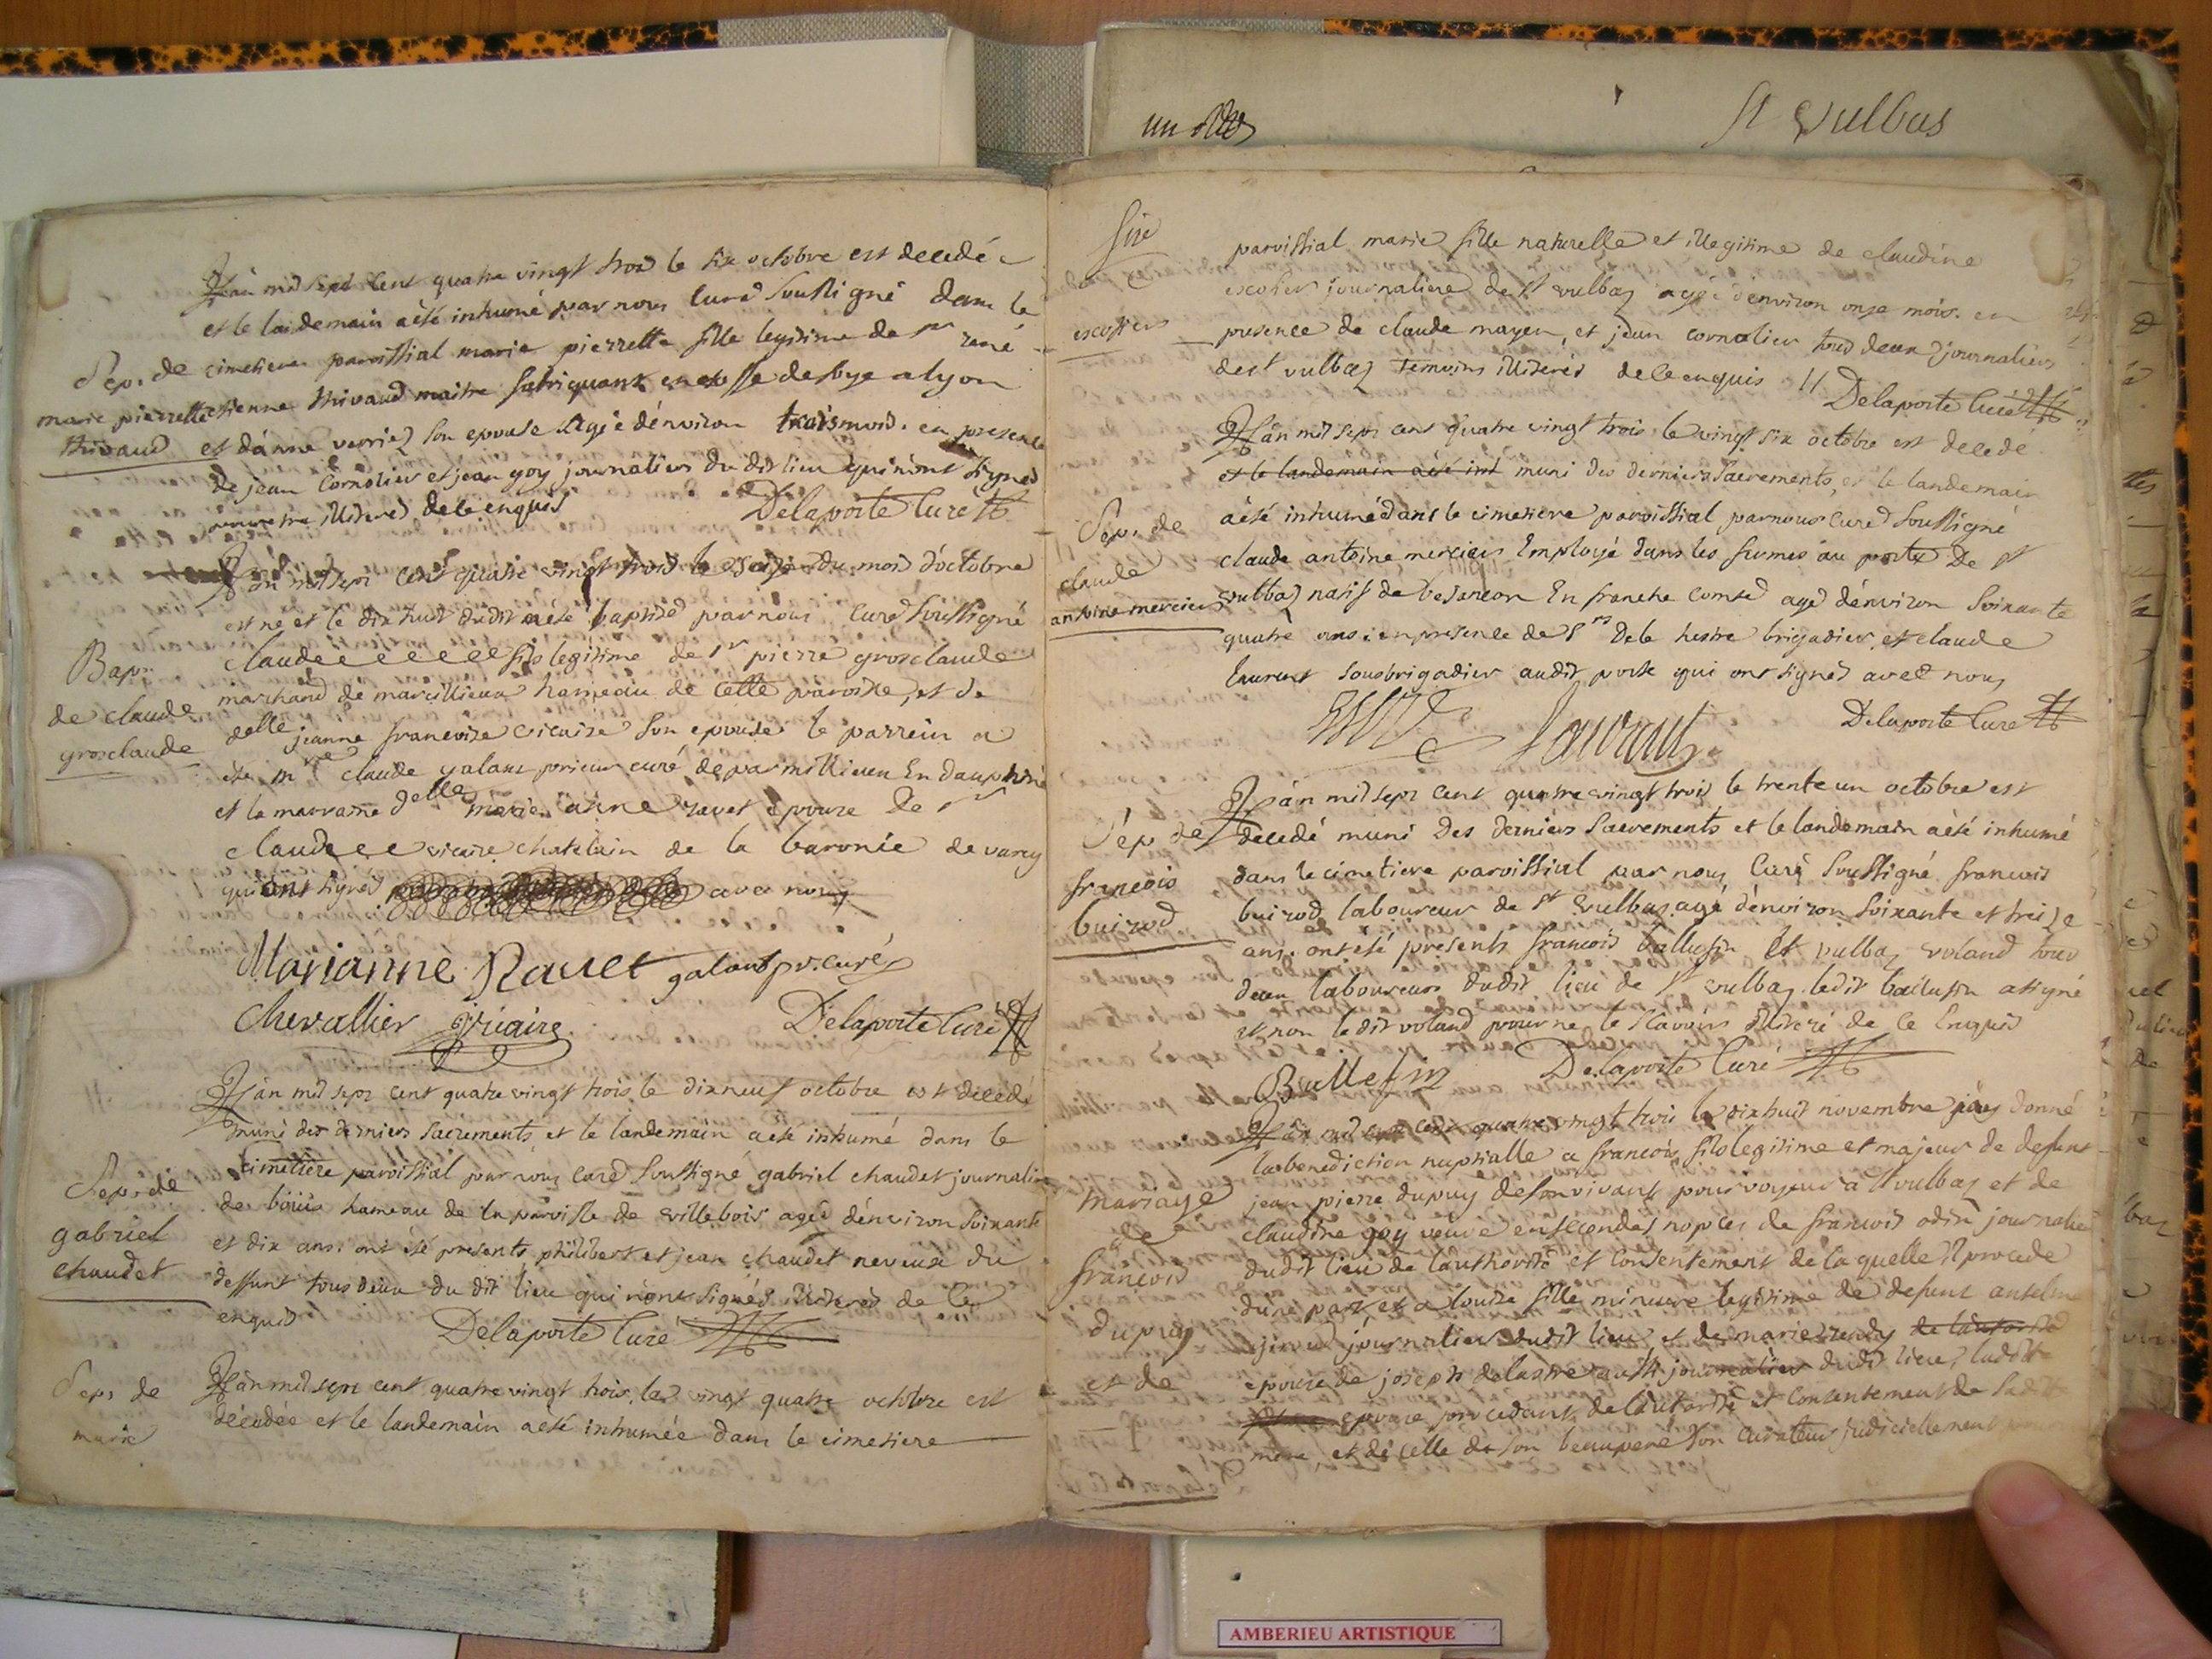 L'an mil sept cent quatre vingt trois le six octobre est decedée
et le landemain a été inhumé par nous curé soussigné dans le
Sép. de
marie pierrette
thivaud
cimetiere paroissial marie pierrette fille legitime de Sr rené
etienne thivaud maitre fabriquant en etoffe de soye a lyon
et d'anne verrier son epouse agée d'environ trois mois. en presence
de jean cornolier et jean goy journaliers du dit lieu qui n'ont signés
illiterés de ce enquis Delaporte curé
Bap.
de claude
grosclaude
L'an mil sept cent quatre vingt trois le seize du mois d'octobre
est né et le dix huit dudit a été baptisé par nous curé soussigné
claude fils legitime de Sr pierre grosclaude
marchand de marcillieux hameau de cette paroisse, et de
delle jeanne francoise vicaire son epouse le parrein a
été mre claude galant prieur curé de parmillieu En dauphiné
et la marraine delle marie anne ravet epouse de Sr
claude vicaire chatelain de la baronie de varey
qui ont signés avec nous
Marianne Ravet galant pr. curé
Chevallier Vicaire Delaporte curé
Sep. de
gabriel
chaudet
L'an mil sept cent quatre vingt trois le dixneuf octobre est decedé
muni des derniers sacrements et le landemain a été inhumé dans le
cimetiere paroissial par nous curé soussigné gabriel chaudet journalier
de bouis hameau de la paroisse de villebois agé d'environ soixante
et dix ans. ont été presents philibert et jean chaudet neveux du
deffunt tous deux du dit lieu qui n'ont signés illiterés de ce
enquis Delaporte Curé
Sep. de
marie
L'an mil sept cent quatre vingt trois le vingt quatre octobre est
décedée et le landemain a été inhumée dans le cimetiere
St Vulbas
escoffiers
paroissial marie fille naturelle et illegitime de claudine
escofier journaliere de St vulbaz agée d'environ onze mois. en
presence de claude mayen, et jean cornolier tous deux journaliers
de st vulbaz temoins illiterés de ce enquis Delaporte Curé
Sép. de
claude
antoine mercier
L'an mil sept cent quatre vingt trois le vingt six octobre est decedé
et le landemain a été inh muni des derniers sacrements, et le landemain
a été inhumé dans le cimetiere paroissial par nous curé soussigné
claude antoine mercier Employé dans les fermes au poste de St
vulbaz natif de besancon En franche comté agé d'environ soixante
quatre ans. en presence de Srs brigadier et claude
laurent sousbrigadier audit poste qui ont signés avec nous
Delaporte Curé
Sép de
francois
buirod
L'an mil sept cent quatre vingt trois le trente un octobre est
decedé muni des derniers sacrements et le landemain a été inhumé
dans le cimetiere paroissial par nous Curé soussigné francois
buirod laboureur de St vulbaz agé d'environ soixante et treize
ans. ont été presents francois ballufin et vulbaz voland tous
deux laboureurs dudit lieu de St vulbaz ledit ballufin a signé
et non ledit voland pour ne le scavoir illiteré de ce Enquis
Ballefin Delaporte Curé
mariage
de
françois
dupuy
et de
L'an mil sept cent quatre vingt trois le dix huit novembre jay donné
la benediction nuptialle a francois fils legitime et majeur de defunt
jean pierre dupuy de son vivant pourvoyeur a St vulbaz et de
claudine goy veuve en secondes nopces de francois odin journalier
dudit lieu de l'authorité et consentement de laquelle il procede
d'une part et a louise fille mineure legitime de defunt anselme
girod journalier dudit lieu et de marie de l'autorité
epouse de joseph delastre aussi journalier dudit lieu, ladite
epouse procedant de l'autorité et consentement de sadite
mere, et de celle de son beaupere son curateur judiciellement
AMBERIEU ARTISTIQUE